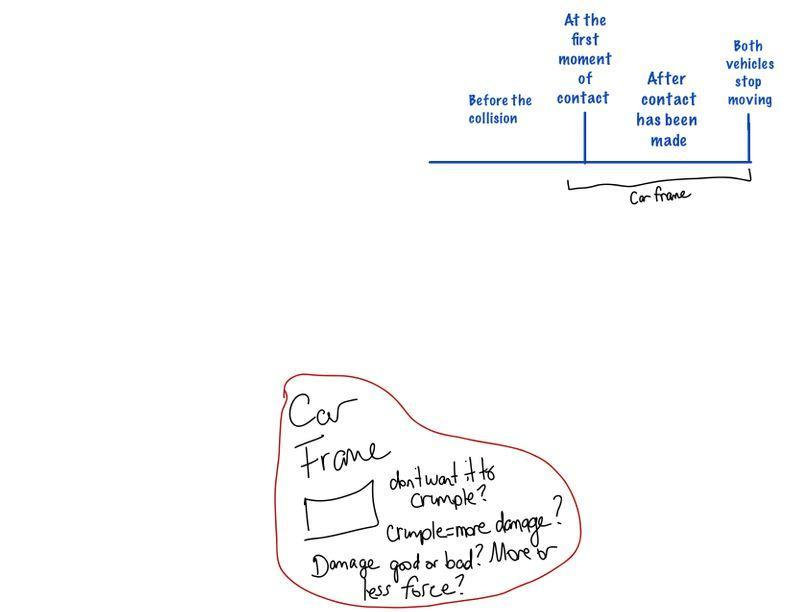 At the
first
moment
of
contact
Before the
collision
After
contact
has been
made
Both
vehicles
stop
moving
Car frame
Car
Frame
don't want it to
crumple?
Crumple=more damage?
Damage good or bad? More or
less force?